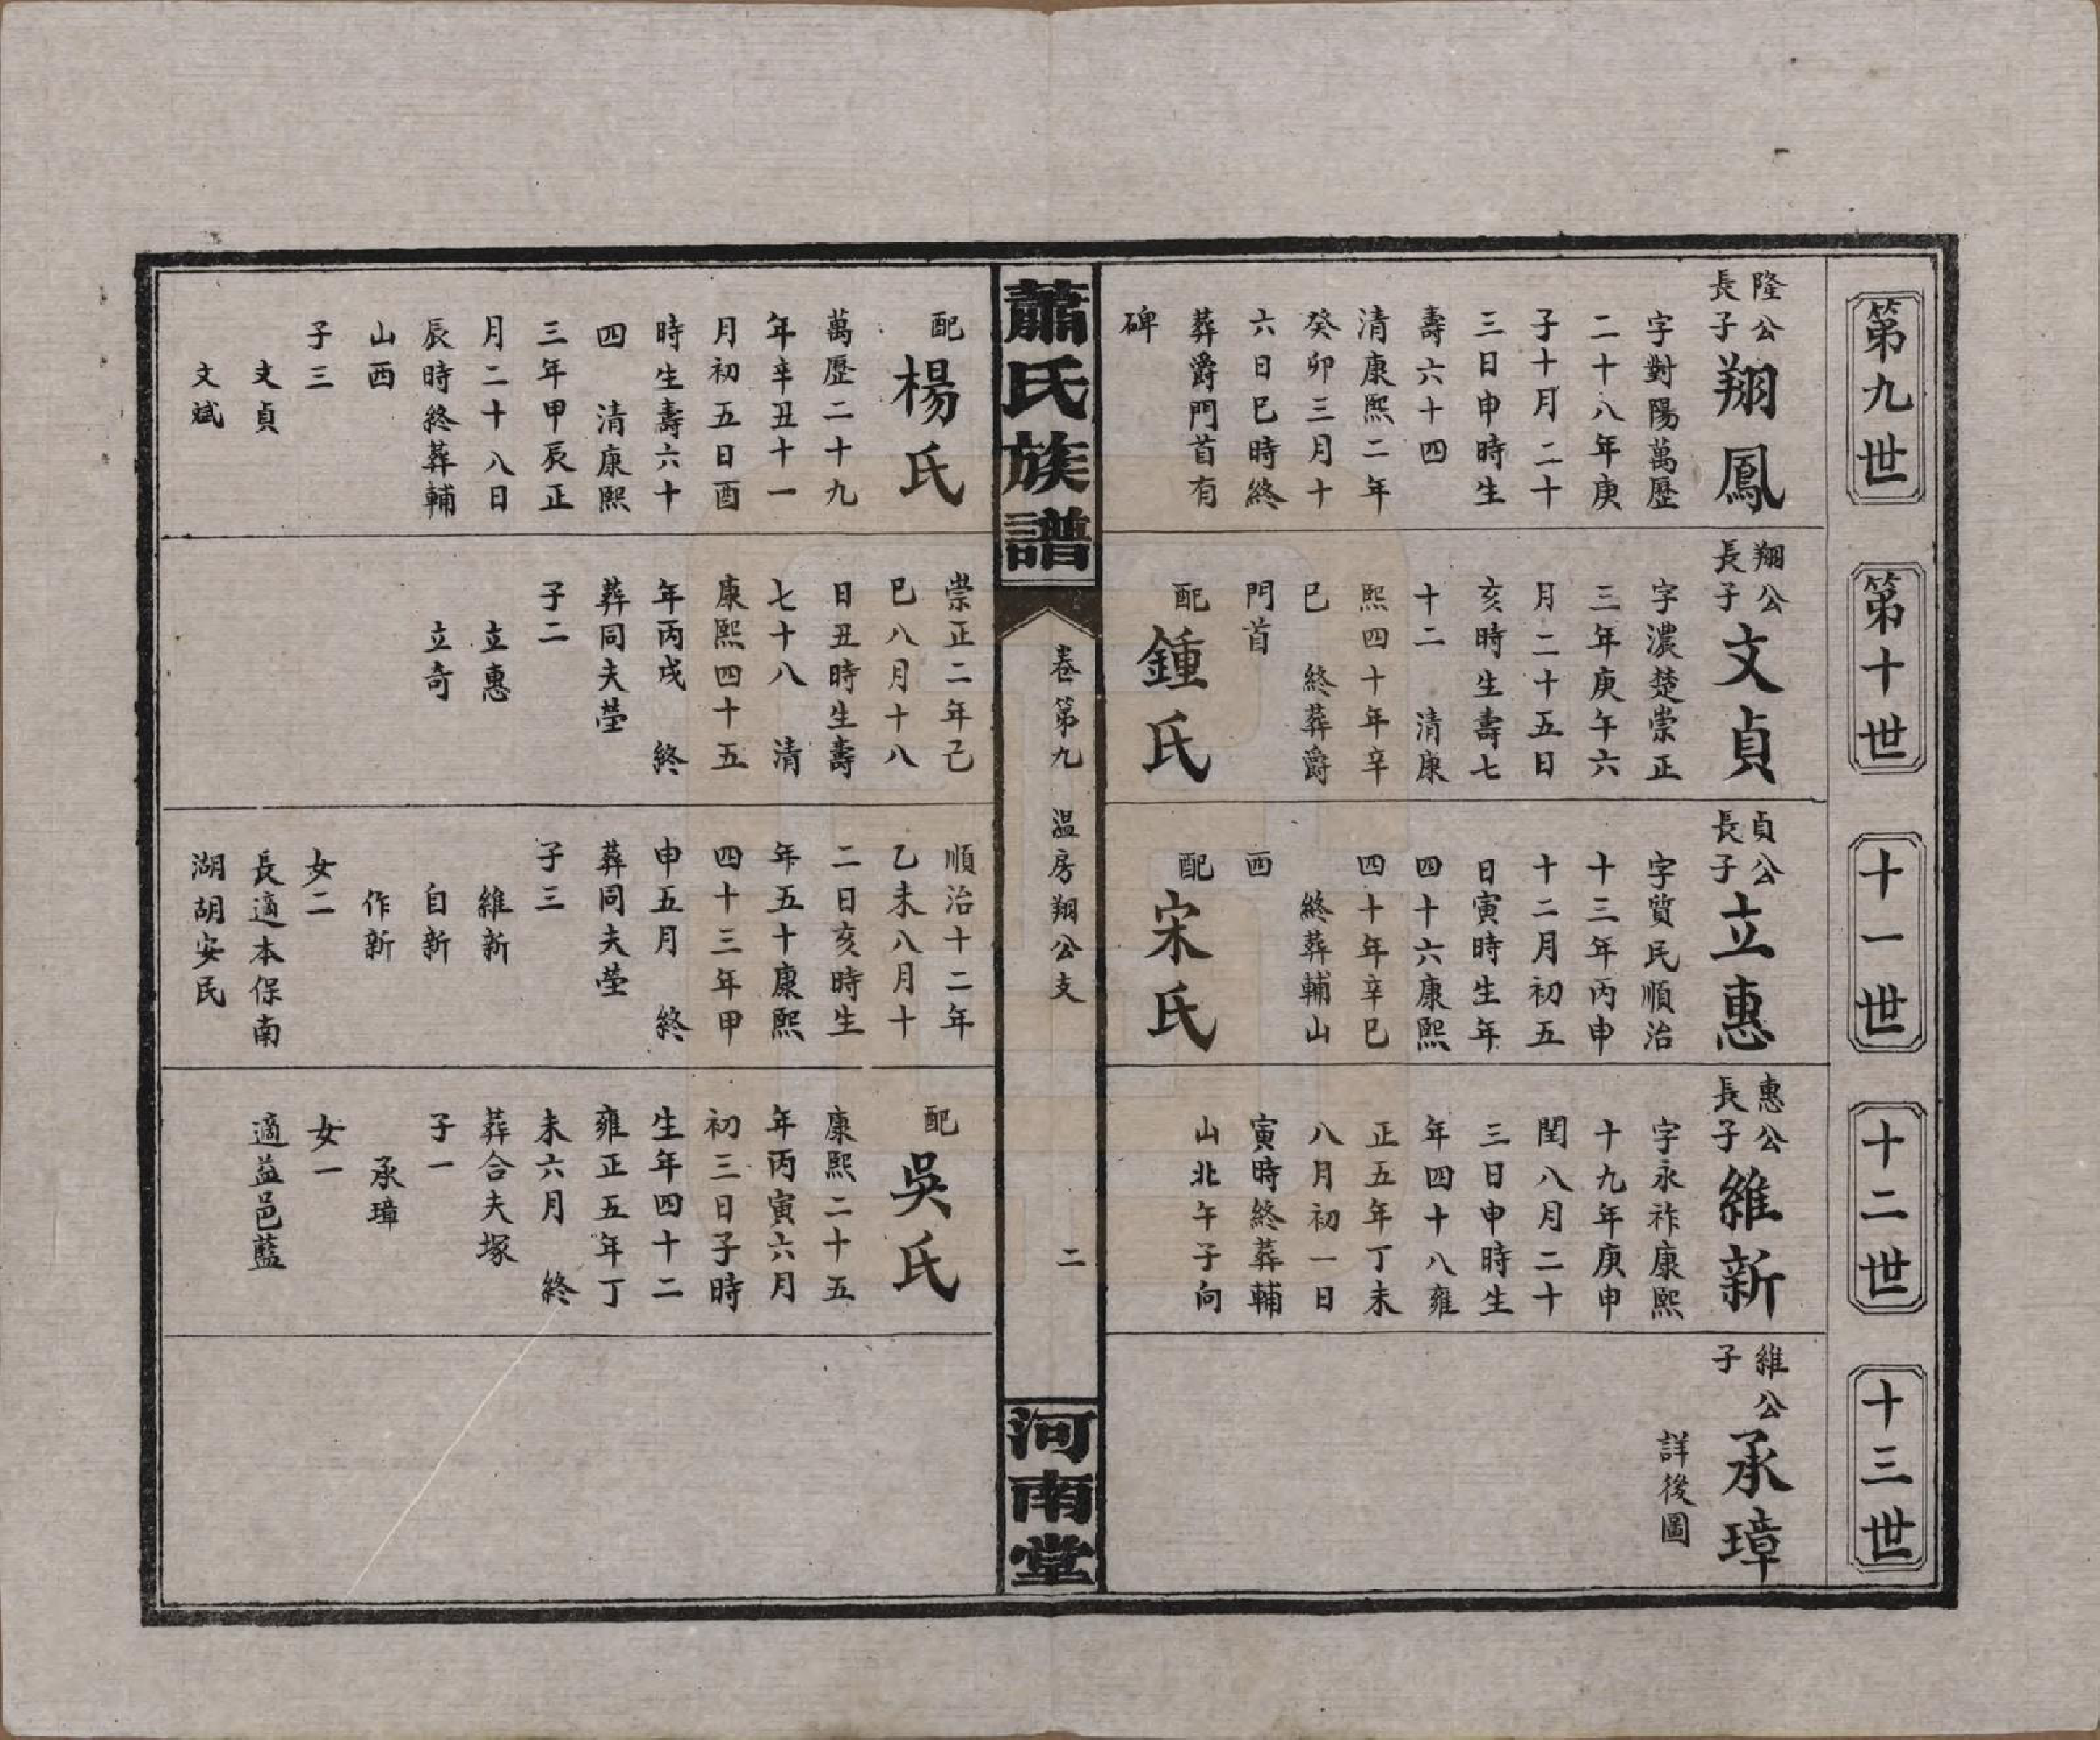 第九世
隆公
長子
翔鳳
字對陽萬歷
二十八年庚
子十月二十
三日申時生
壽六十四
清康熙二年
癸卯三月十
六日巳時終
葬爵門首有
碑
第十世
翔公
長子
文貞
字濃楚崇正
三年庚午六
月二十五日
亥時生壽七
十二 清康
熙四十年辛
巳 終葬爵
門首
配
鍾氏
十一世
貞公
長子
立惠
字質民順治
十三年丙申
十二月初五
日寅時生年
四十六康熙
四十年辛巳
終葬輔山
西
配
宋氏
十二世
惠公
長子
維新
字永祚康熙
十九年庚申
閏八月二十
三日申時生
年四十八雍
正五年丁未
八月初一日
寅時終葬輔
山北午子向
十三世
維公
子
承璋
詳後圖
蕭氏族譜
卷第九 温房翔公支
二
河南堂
配
楊氏
萬歷二十九
年辛丑十一
月初五日酉
時生壽六十
四 清康熙
三年甲辰正
月二十八日
辰時終葬輔
山西
子三
文貞
文斌
崇正二年己
巳八月十八
日丑時生壽
七十八 清
康熙四十五
年丙戌 終
葬同夫塋
子二
立惠
立奇
順治十二年
乙未八月十
二日亥時生
年五十康熙
四十三年甲
申五月 終
葬同夫塋
子三
維新
自新
作新
女二
長適本保南
湖胡安民
配
吳氏
康熙二十五
年丙寅六月
初三日子時
生年四十二
雍正五年丁
未六月 終
葬合夫塚
子一
承璋
女一
適益邑藍